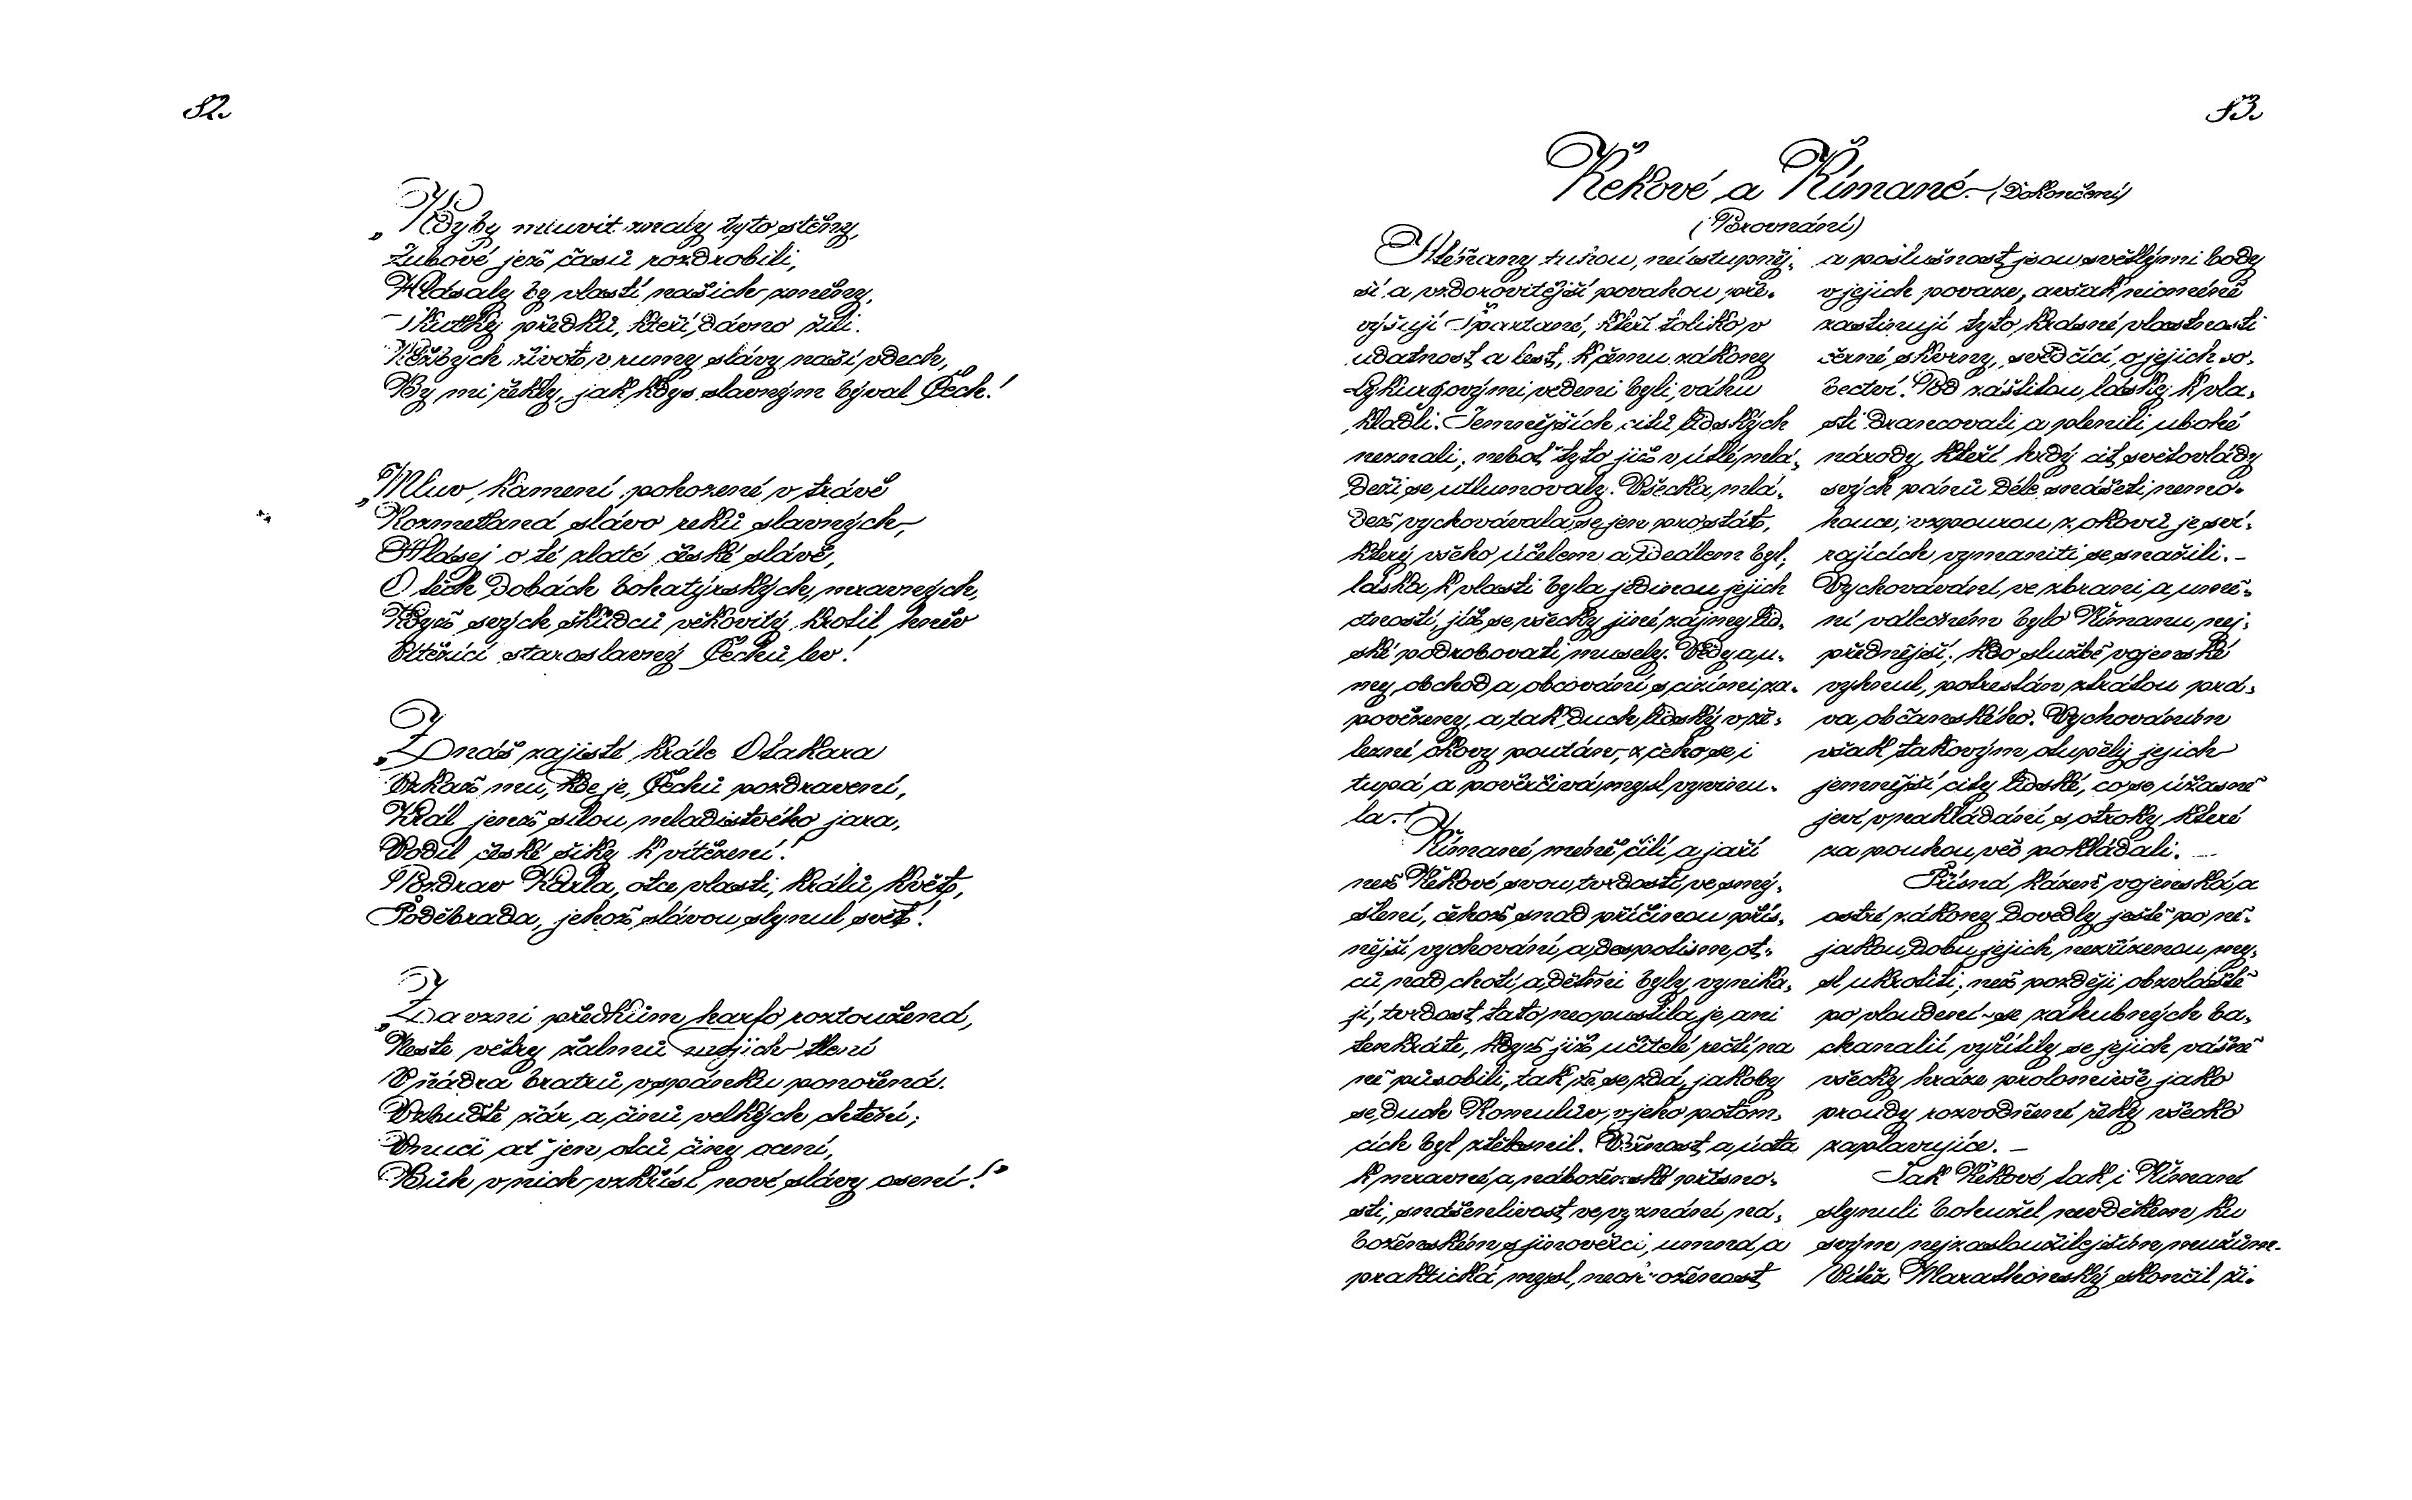 52.
„Kdyby mluvit znaly tyto stěny,
Zubové jež časů rozdrobili,
Hlásaly by vlastí našich změny,
Skutky předků, kteří dávno žili.
život v rumy slávy naší vdech,
By mi řekly, jak kdys slavným býval Čech!
„Mluv kamení pohozené v trávě
Rozmetaná slávo reků slavných,
Hlásej o té zlaté české slávě,
O těch dobách bohatýrských, mravných,
Když svých škůdců věkovitý krotil hněv
Vítězící staroslavný Čechů lev!
„Znáš zajisté krále Otakara
Vzkaž mu, kde je, Čechů pozdravení,
Král jenž silou mladistvého jara,
Vodil české šiky k vítězení!
Pozdrav Karla, otce vlasti, králů květ,
Poděbrada, jehož slávou slynul svět!
„Zavzni předkům harfo roztoužená,
Neste větry žalmů mojich tklení
V ňádra bratrů v spánku ponořená.
Vzbuďte žár, a činů velkých chtění;
Vnuci ať jen otců činy ocení,
Bůh v nich vzkřísí nové slávy osení!“
53.
Řekové a Římané. (Dokončení)
(Porovnání)
Atéňany tuhou, neústupněj-
ší a vzdorovitější povahou pře-
vyšují Sparťané, kteří toliko v
udatnost a lest, k čemu zákony
Lykurgovými vedeni byli, váhu
kladli. Jemnějších citů lidských
neznali, neboť tyto již v útlé mlá-
deži se utlumovaly. Všecka mlá-
dež vychovávala se jen pro stát,
který všeho účelem a ideálem byl,
láska k vlasti byla jedinou jejich
ctností, jíž se všecky jiné zájmy lid-
ské podrobovati musely. Vědy a u-
my, obchod a obcování s cizími za-
povězeny, a tak duch lidský v že-
lezné okovy poután, z čeho se i
tupá a pověrčivá mysl vyvinu-
la.
Římané méně čilí a jaří
než Řekové svou tvrdostí ve smý-
šlení, čehož snad příčinou přís-
nější vychování a despotism ot-
ců nad chotí a dětmi byly, vynika-
jí, tvrdost tato neopustila je ani
tenkráte, když již učitelé řečtí na
ně působili, tak že se zdá, jakoby
se duch Romulův v jeho potom-
cích byl ztělesnil. Věrnost a úcta
k mravné a náboženské přísno-
sti, snášenlivost ve vyznání ná-
boženském s jinověrci, umná a
praktická mysl,
a poslušnost jsou světlými body
v jejich povaze, avšak nicméně
zastinují tyto krásné vlastnosti
černé skvrny, svědčící o jejich so-
bectví. Pod záštitou lásky k vla-
sti drancovali a plenili ubohé
národy, kteří hrdý cit světovlády
svých pánů déle snášeti nemo-
houce, vzpourou z okovů je sví-
rajících vymaniti se snažili. –
Vychovávání ve zbrani a umě-
ní válečném bylo Římanu nej-
přednější; kdo službě vojenské
vyhnul, potrestán ztrátou prá-
va občanského. Vychováním
však takovým otupěly jejich
jemnější city lidské, co se úžasně
jeví v nakládání s otroky, které
za pouhou věc pokládali. –
Přísná kázeň vojenská a
ostré zákony dovedly ještě po ně-
jakou dobu jejich nezřízenou my-
sl ukrotiti, než později obzvláště
po vloudění se záhubných ba-
chanalií vyřítily se jejich vášně
všecky hráze prolomivše jako
proudy rozvodněné řeky všecko
zaplavujíce. –
Jak Řekové tak i Římané
slynuli bohužel nevděkem ku
svým nejzasloužilejším mužům.
Vítěz Marathonský skončil ži-